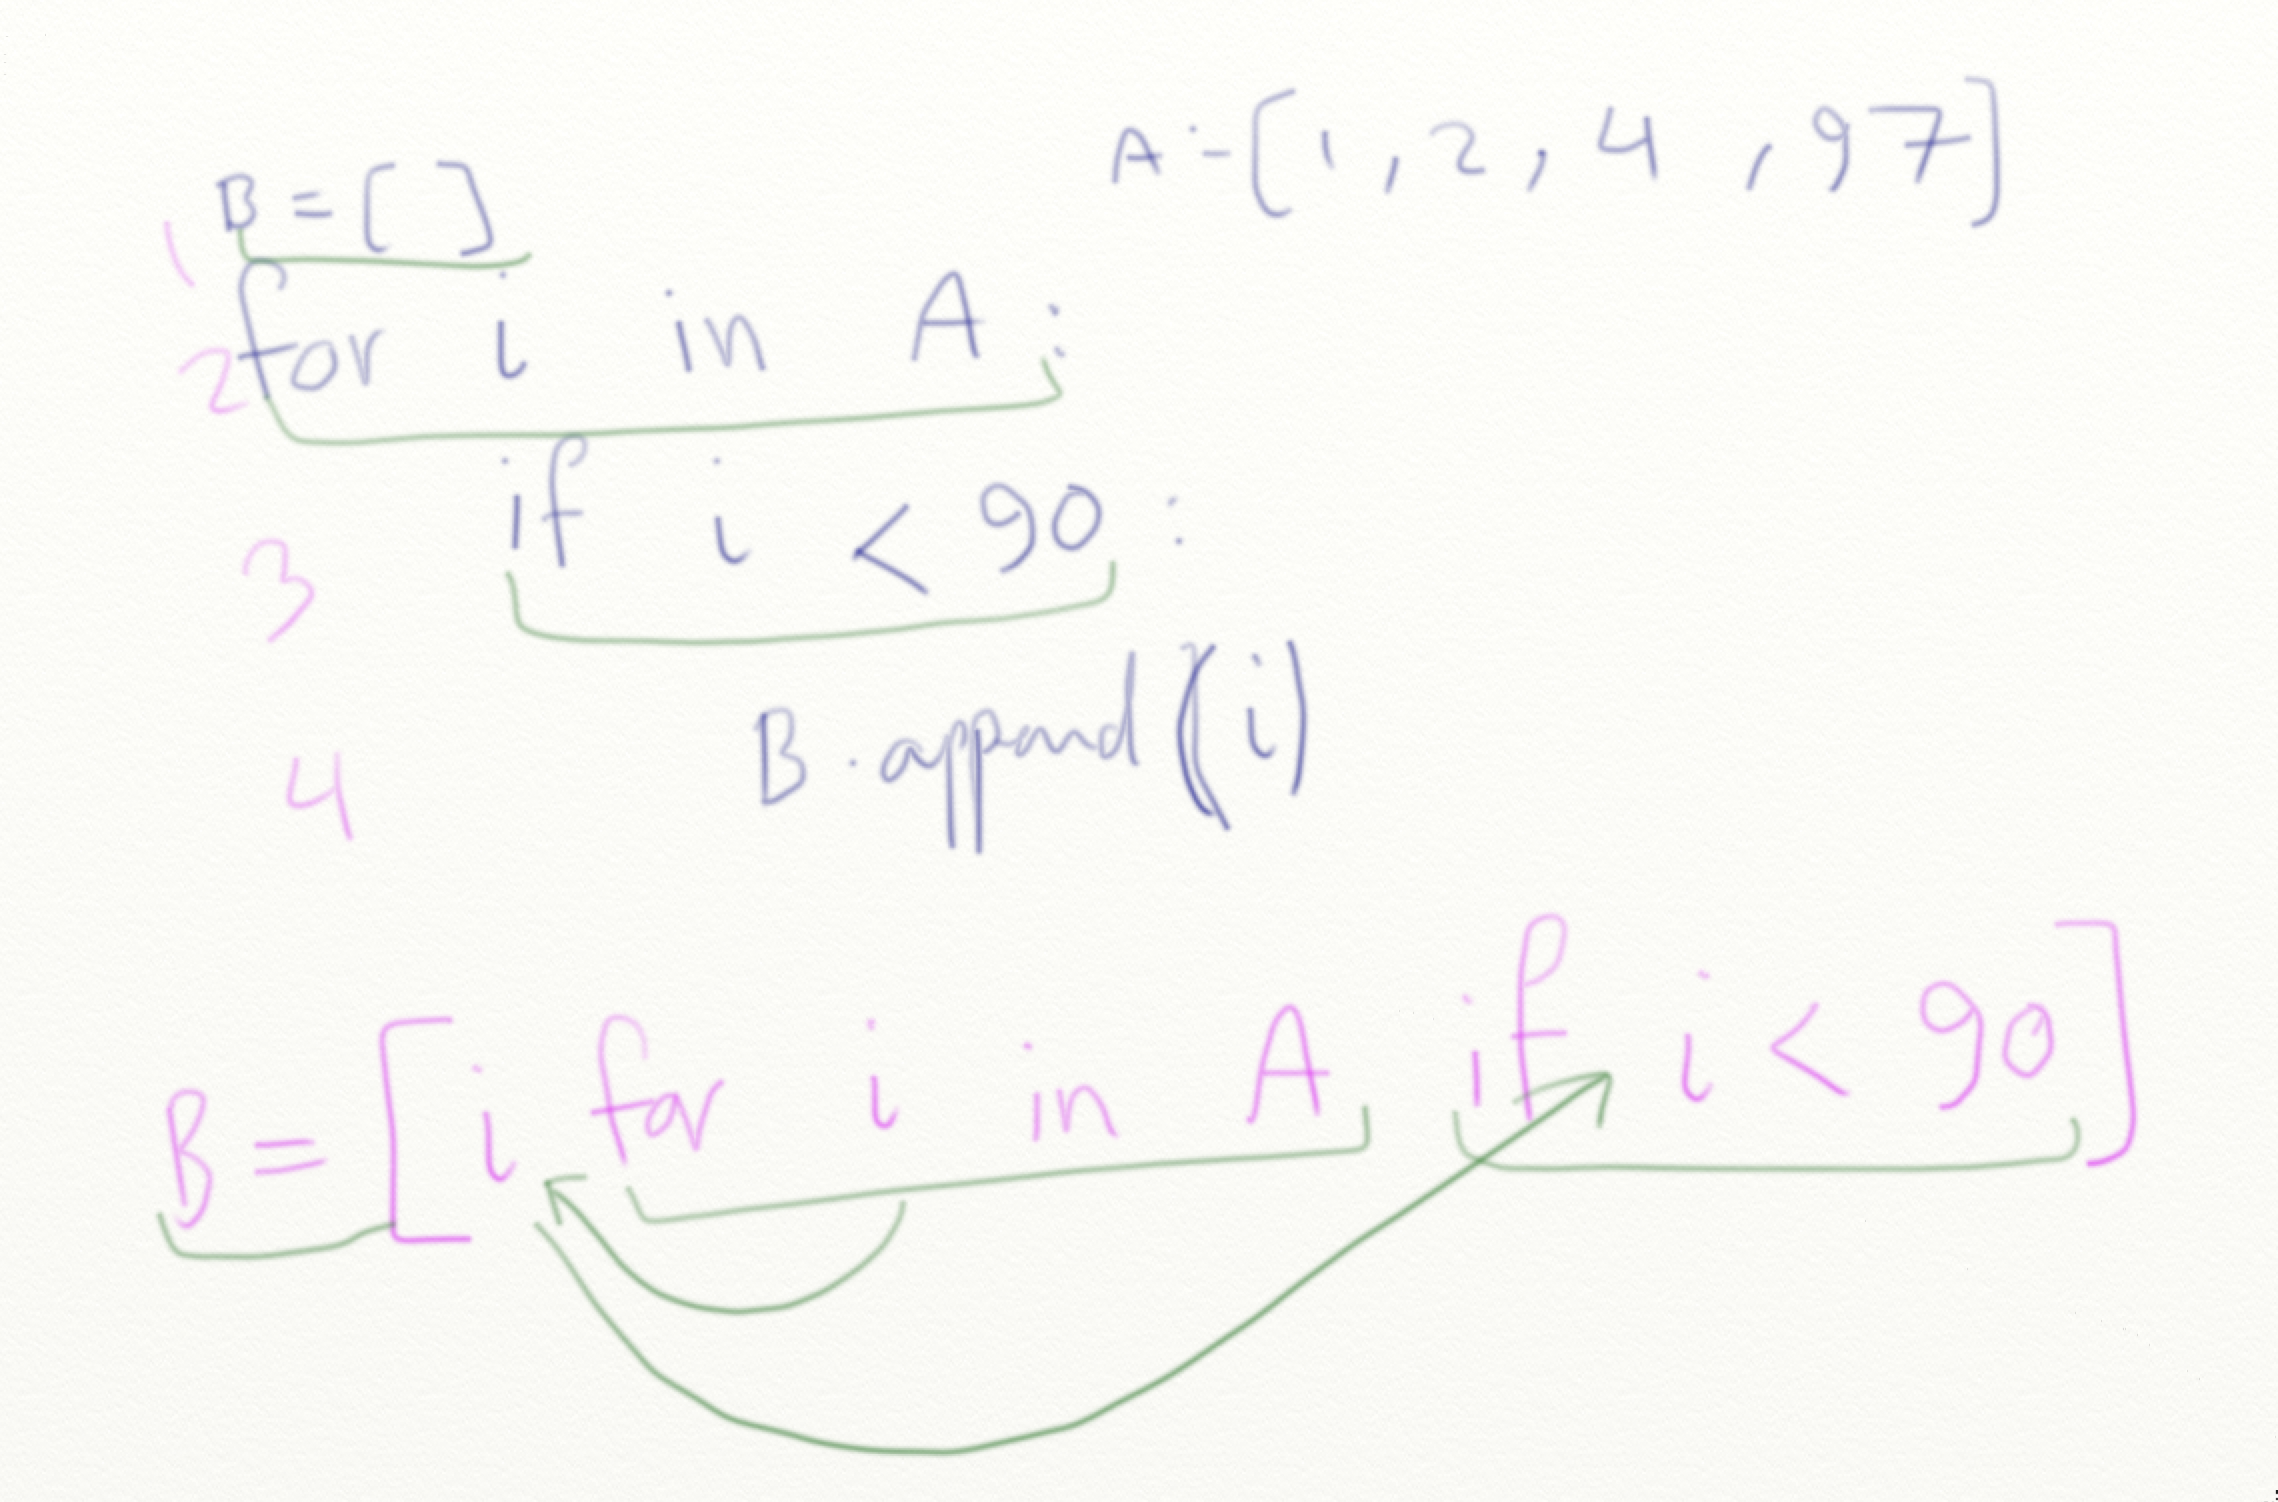 A = [1, 2, 4, 97]
1 B = [ ]
2 for i in A:
3 if i < 90:
4 B.append(i)
B = [i for i in A if i < 90]